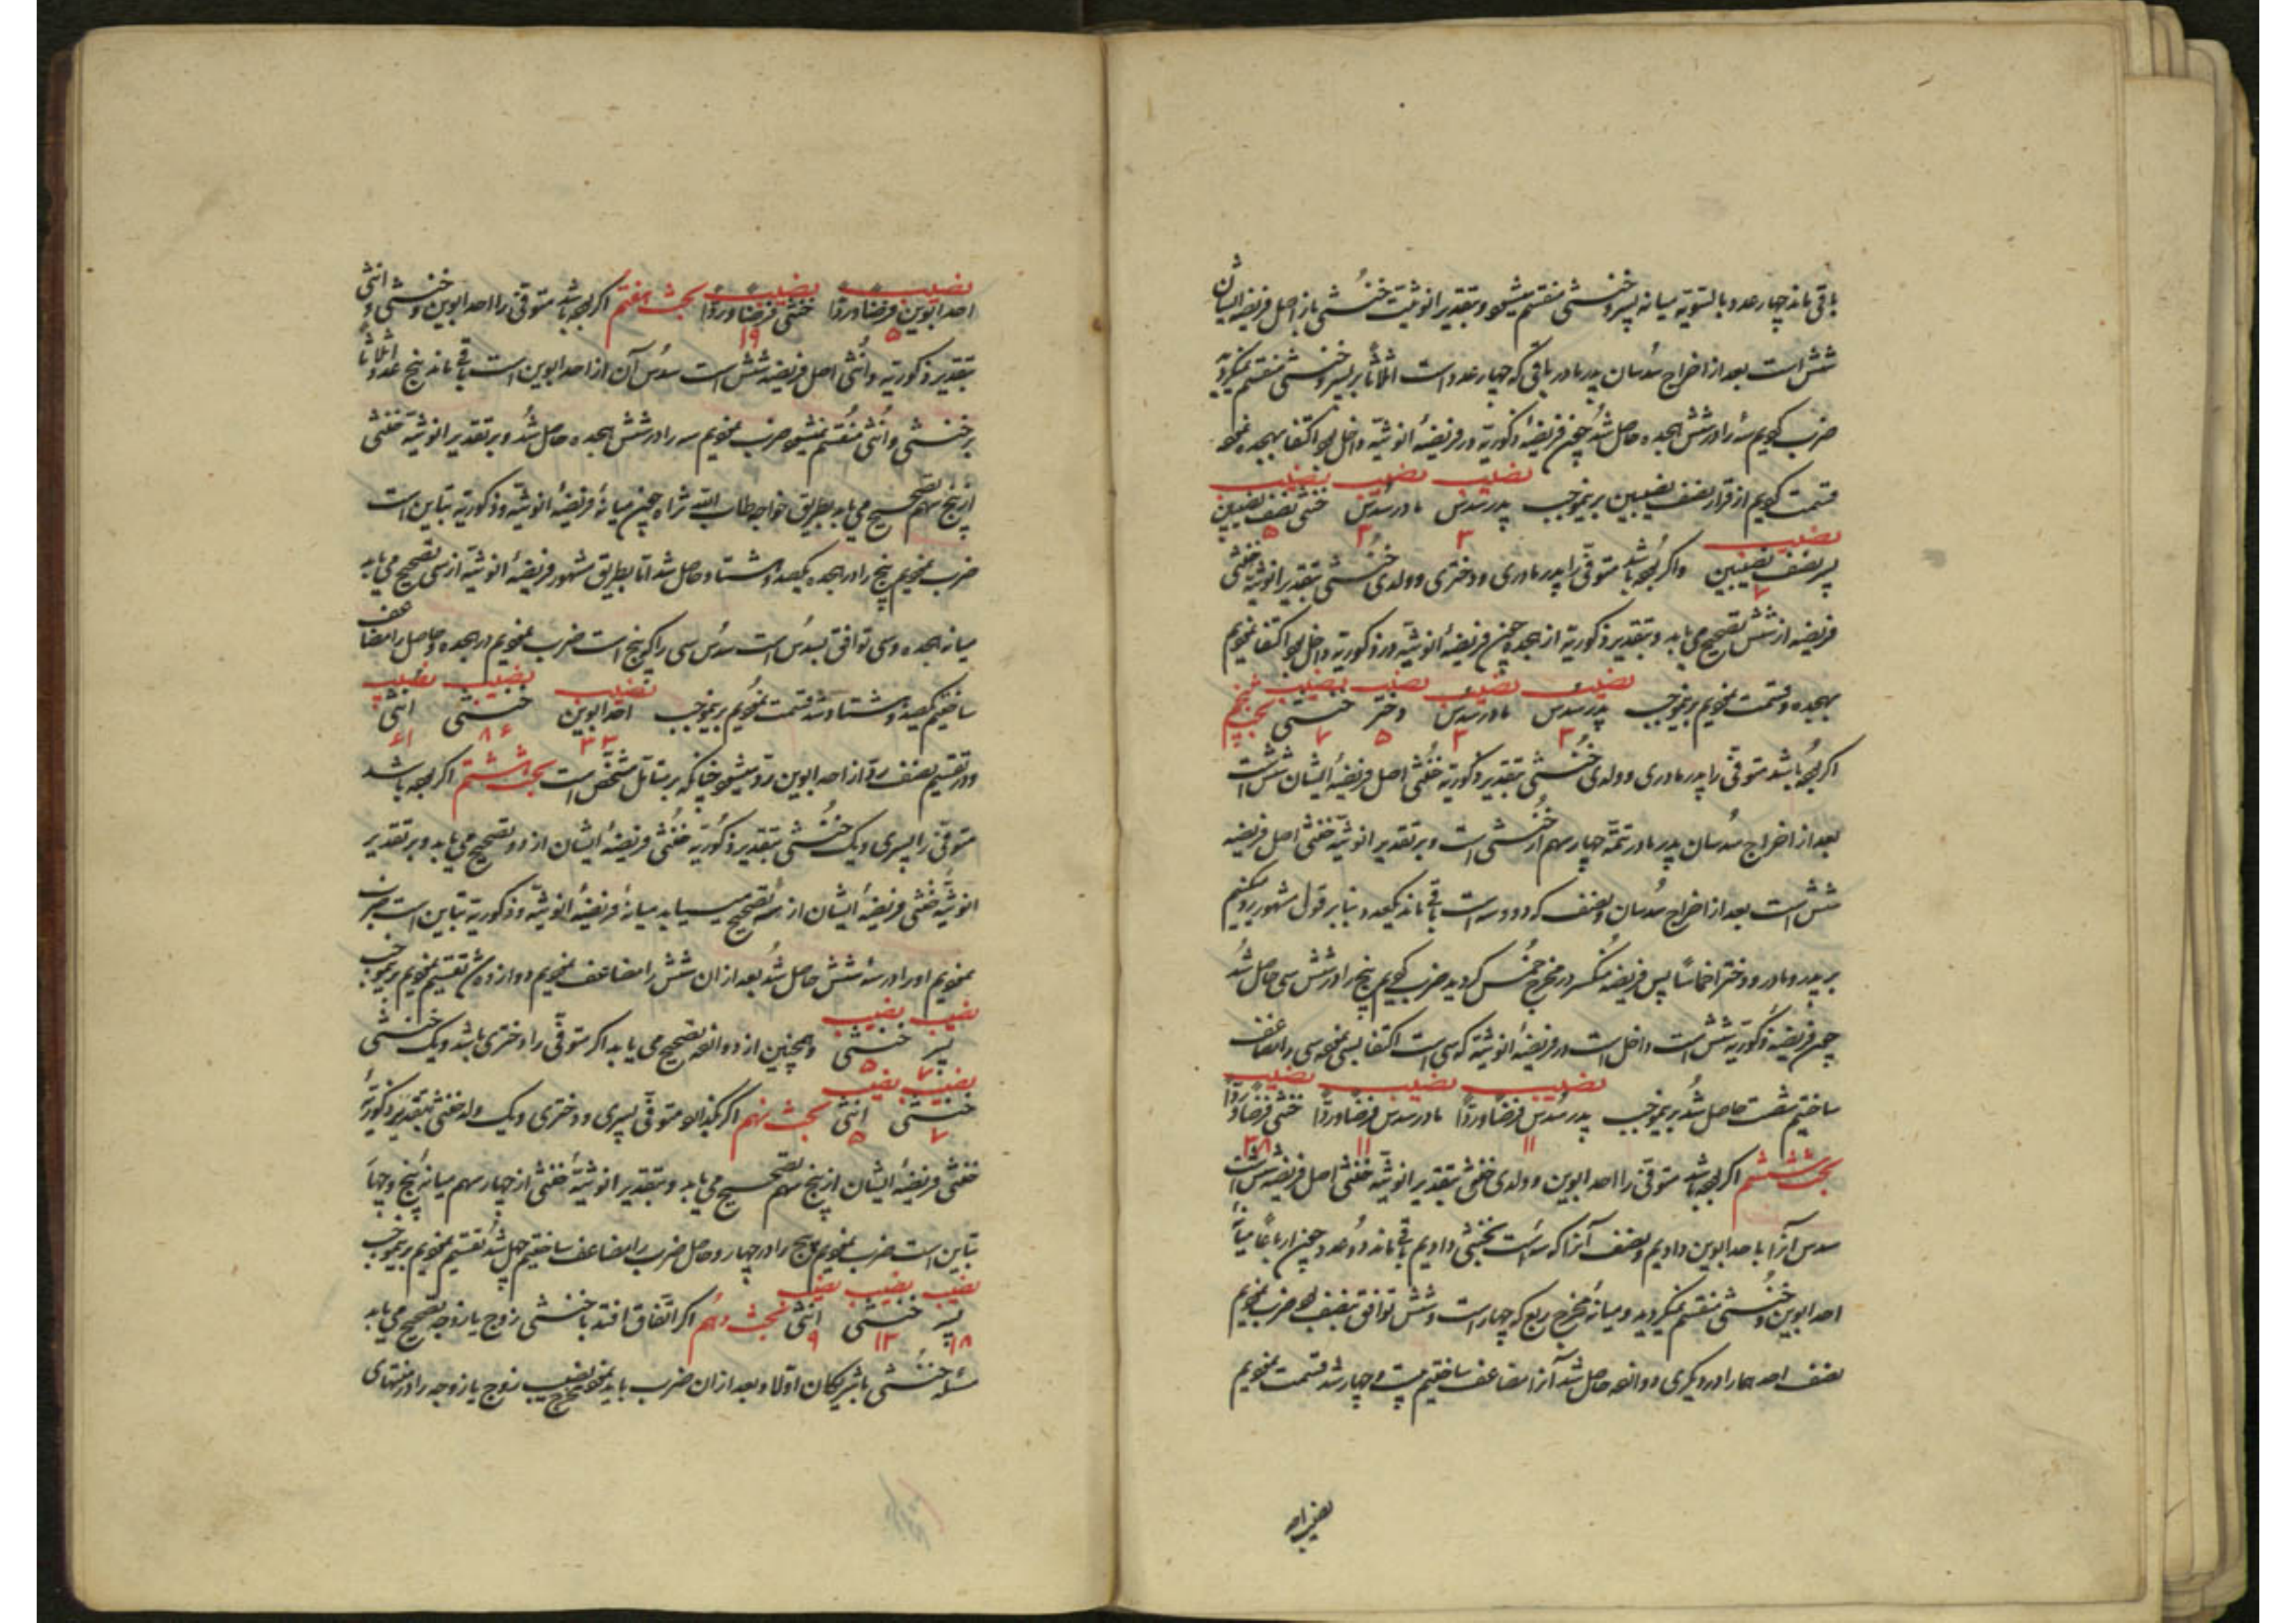 باقی ماند چهار عدد و بالسّویّه میانه پسر و خنثی منقسم میشود و بتقدیر انوثیت خنثی باز اصل فریضه ایشان
شش است بعد از اخراج سُدسان پدر مادر باقی که چهار عدد است اثلاثاً بر پسر و خنثی منقسم نمیگردد
ضرب کردیم سه را در شش هجده حاصل شُد چون فریضهٔ ذکوریّة در فریضهٔ انوثیّة داخل بود اکتفا بهجده نموده
قسمت کردیم از قرار نصف نصیبین برینموجب
نصیب نصیب نصیب
پدر سُدس مادر سُدس خنثی نصف نصیبین
۳ ۳ ۵
نصیب
پسر نصف نصیبین واگر بوده باشد متوفّی را پدر مادری و دختری و ولدی خُنثی بتقدیر انوثیّة خنثی
۷
فریضه از شش تصحیح می یابد و بتقدیر ذکوریّة از هجده چون فریضهٔ انوثیّة در ذکوریّة داخل بود اکتفا نمودیم
بهجده و قسمت نمودیم برینموجب
نصیب نصیب نصیب نصیب
پدر سدس مادر سدس دختر خنثی بحث پنجم
۳ ۳ ۵ ۷
اگر بوده باشد متوفّی را پدر مادری و ولدی خُنثی بتقدیر ذکوریّة خنثی اصل فریضهٔ ایشان شش است
بعد از اخراج سُدسان پدر مادر تتمّه چهار سهم از خُنثی است و بر تقدیر انوثیّة خنثی اصل فریضه
شش است بعد از اخراج سُدسان و نصف که دو و سه است باقی ماند یکعدد و بنا بر قول مشهور رد میکنیم
بر پدر و مادر و دختر اخماساً پس فریضه منکسر در مخرج خُمس گردید ضرب کردیم پنج را در شش سی حاصل شُد
چون فریضهٔ ذکوریّة شش است داخل است در فریضهٔ انوثیّة که سی است اکتفا بسی نموده سی را مضاعف
ساختیم شصت حاصل شُد برینموجب
نصیب نصیب نصیب
پدر سُدس فرضاً وردّاً مادر سدس فرضاً وردّاً خنثی فرضاً وردّاً
۱۱ ۱۱ ۳۸
بحث ششم اگر بوده باشد متوفّی را احد ابوین و ولدی خنثی بتقدیر انوثیّة خنثی اصل فریضه شش است
سدس آنرا باحد ابوین دادیم و نصف آنرا که سه است بخنثی دادیم باقی ماند دو عدد چون ارباعاً میانهٔ
احد ابوین و خُنثی منقسم نمیگردید و میانهٔ مخرج ربع که چهار است و شش توافق بنصف بود ضرب نمودیم
نصف احدهما را در دیگری دوازده حاصل شد آنرا مضاعف ساختیم بیست و چهار شد قسمت نمودیم
نصیب احد
نصیب نصیب
احد ابوین فرضاً وردّاً خنثی فرضاً وردّاً بحث هفتم اگر بوده باشد متوفّی را احد ابوین و خنثی و انثی
۵ ۱۹
بتقدیر ذکوریّة و اُنثی اصل فریضه شش است سدُس آن از احد ابوین است باقی ماند پنج عدد و اثلاثاً
بر خنثی و اُنثی مُنقسم نمیشود ضرب نمودیم سه را در شش هجده حاصل شُد و بر تقدیر انوثیّة خنثی
از پنج سهم تصحیح می یابد بطریق خواجه طاب اللّه ثراه چون میانهٔ فریضهٔ انوثیّة و ذکوریّة تباین است
ضرب نمودیم پنج را در هجده یکصد و هشتاد حاصل شد امّا بطریق مشهور فریضهٔ انوثیّة از سی تصحیح می یابد
میانه هجده و سی توافق بسدُس است سدُس سی را که پنج است ضرب نمودیم در هجده و حاصل را مضاعف
ساختیم یکصد و هشتاد شد قسمت نمودیم برینموجب
نصیب نصیب نصیب
احد ابوین خنثی انثی
۳۳ ۸۶ ۶۱
و در تقسیم نصف ردّ از احد ابوین ردّ میشود چنانکه بر متأمّل مشخّص است بحث هشتم اگر بوده باشد
متوفّی را پسری و یک خُنثی بتقدیر ذکوریّة خُنثی فریضهٔ ایشان از دو تصحیح می یابد و بر تقدیر
انوثیّة خنثی فریضهٔ ایشان از سه تصحیح می یابد میانهٔ فریضهٔ انوثیّة و ذکوریّة تباین است ضرب
نمودیم دو را در سه شش حاصل شُد بعد از ان شش را مضاعف نمودیم دوازده شد تقسیم نمودیم برینموجب
نصیب نصیب
پسر خنثی وهمچنین از دوازده تصحیح می یابد اگر متوفّی را دختری باشد و یک خنثی
۷ ۵
نصیب نصیب
خنثی انثی بحث نهم اگر بگذارد متوفّی پسری و دختری و یک ولد خنثی بتقدیر ذکوریّة
۷ ۵
خنثی فریضهٔ ایشان از پنج سهم تصحیح می یابد و بتقدیر انوثیّة خنثی از چهار سهم میانهٔ پنج و چهار
تباین است ضرب نمودیم پنج را در چهار و حاصل ضرب را مضاعف ساختیم چهل شُد تقسیم نمودیم برینموجب
نصیب نصیب نصیب
پسر خنثی انثی بحث دهم اگر اتّفاق افتد با خنثی زوج یا زوجه تصحیح می یابد
۱۸ ۱۳ ۹
مسئله خُنثی با شریکان اوّلاً و بعد از ان ضرب باید نمود مخرج نصیب زوج یا زوجه را در منتهای